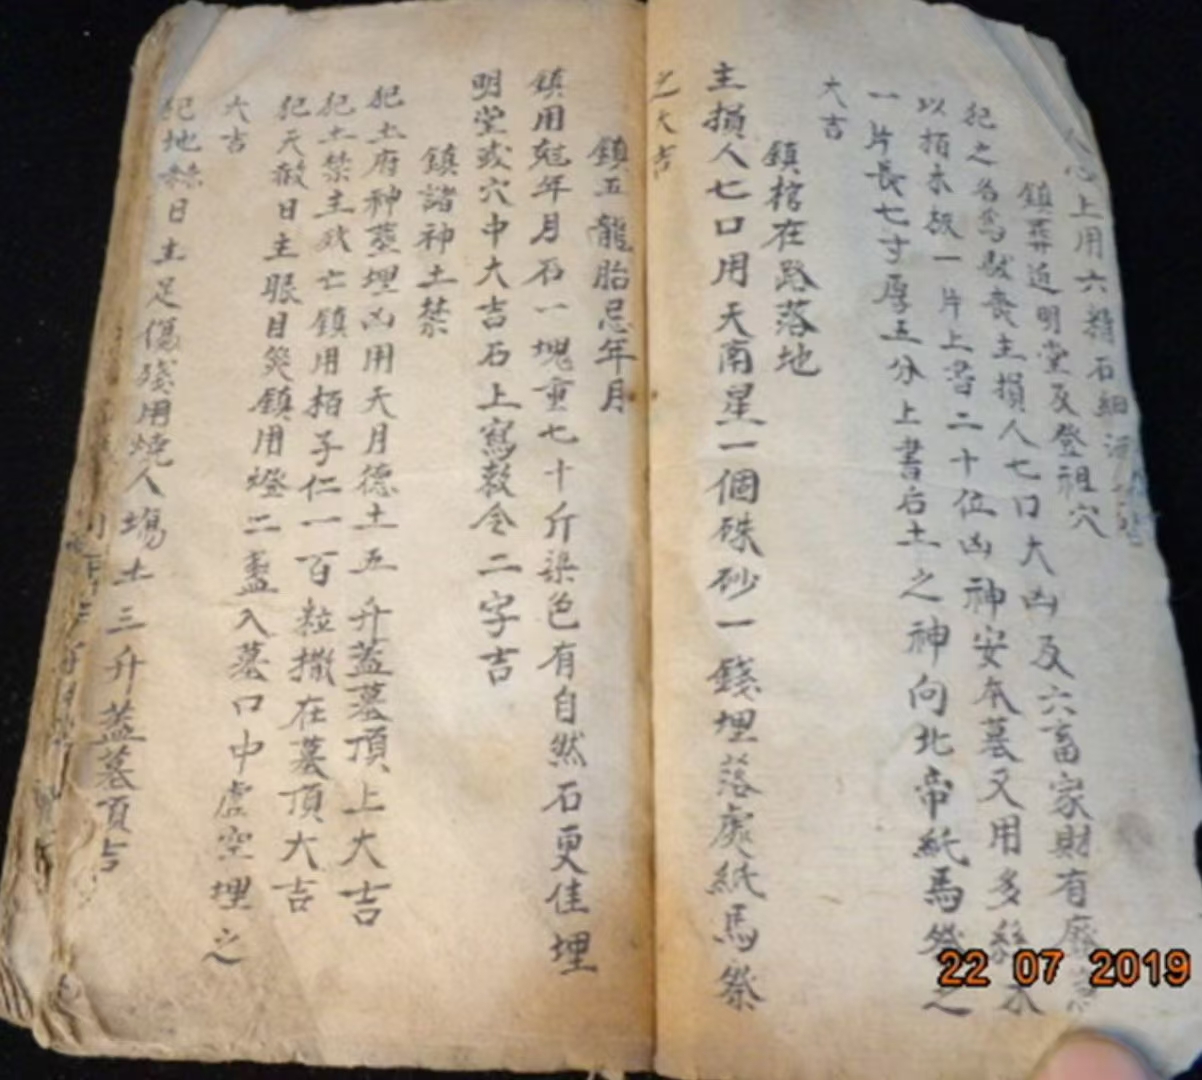 心上用六精石細
鎮葬近明堂及登祖穴
犯之名為
喪主損人七口大凶及六畜家財有
以栢木板一片上書二十位凶神安本墓又用
一片長七寸厚五分上書后土之神向北帝紙馬祭之
大吉
鎮棺在路落地
主損人七口用天南星一個硃砂一錢埋落處紙馬祭
之大吉
鎮五龍胎忌年月
鎮用魁年月石一塊重七十斤染色有自然石更佳埋
明堂或穴中大吉石上寫敕令二字吉
鎮諸神土禁
犯土府神葬埋凶用天月德土五升蓋墓頂上大吉
犯土禁主敗亡鎮用栢子仁一百粒撒在墓頂大吉
犯天瞉日主眼目災鎮用燈二盞入墓口中虛空埋之
大吉
犯地禁日主足傷殘用燒人塲土三升蓋墓頂吉
22 07 2019